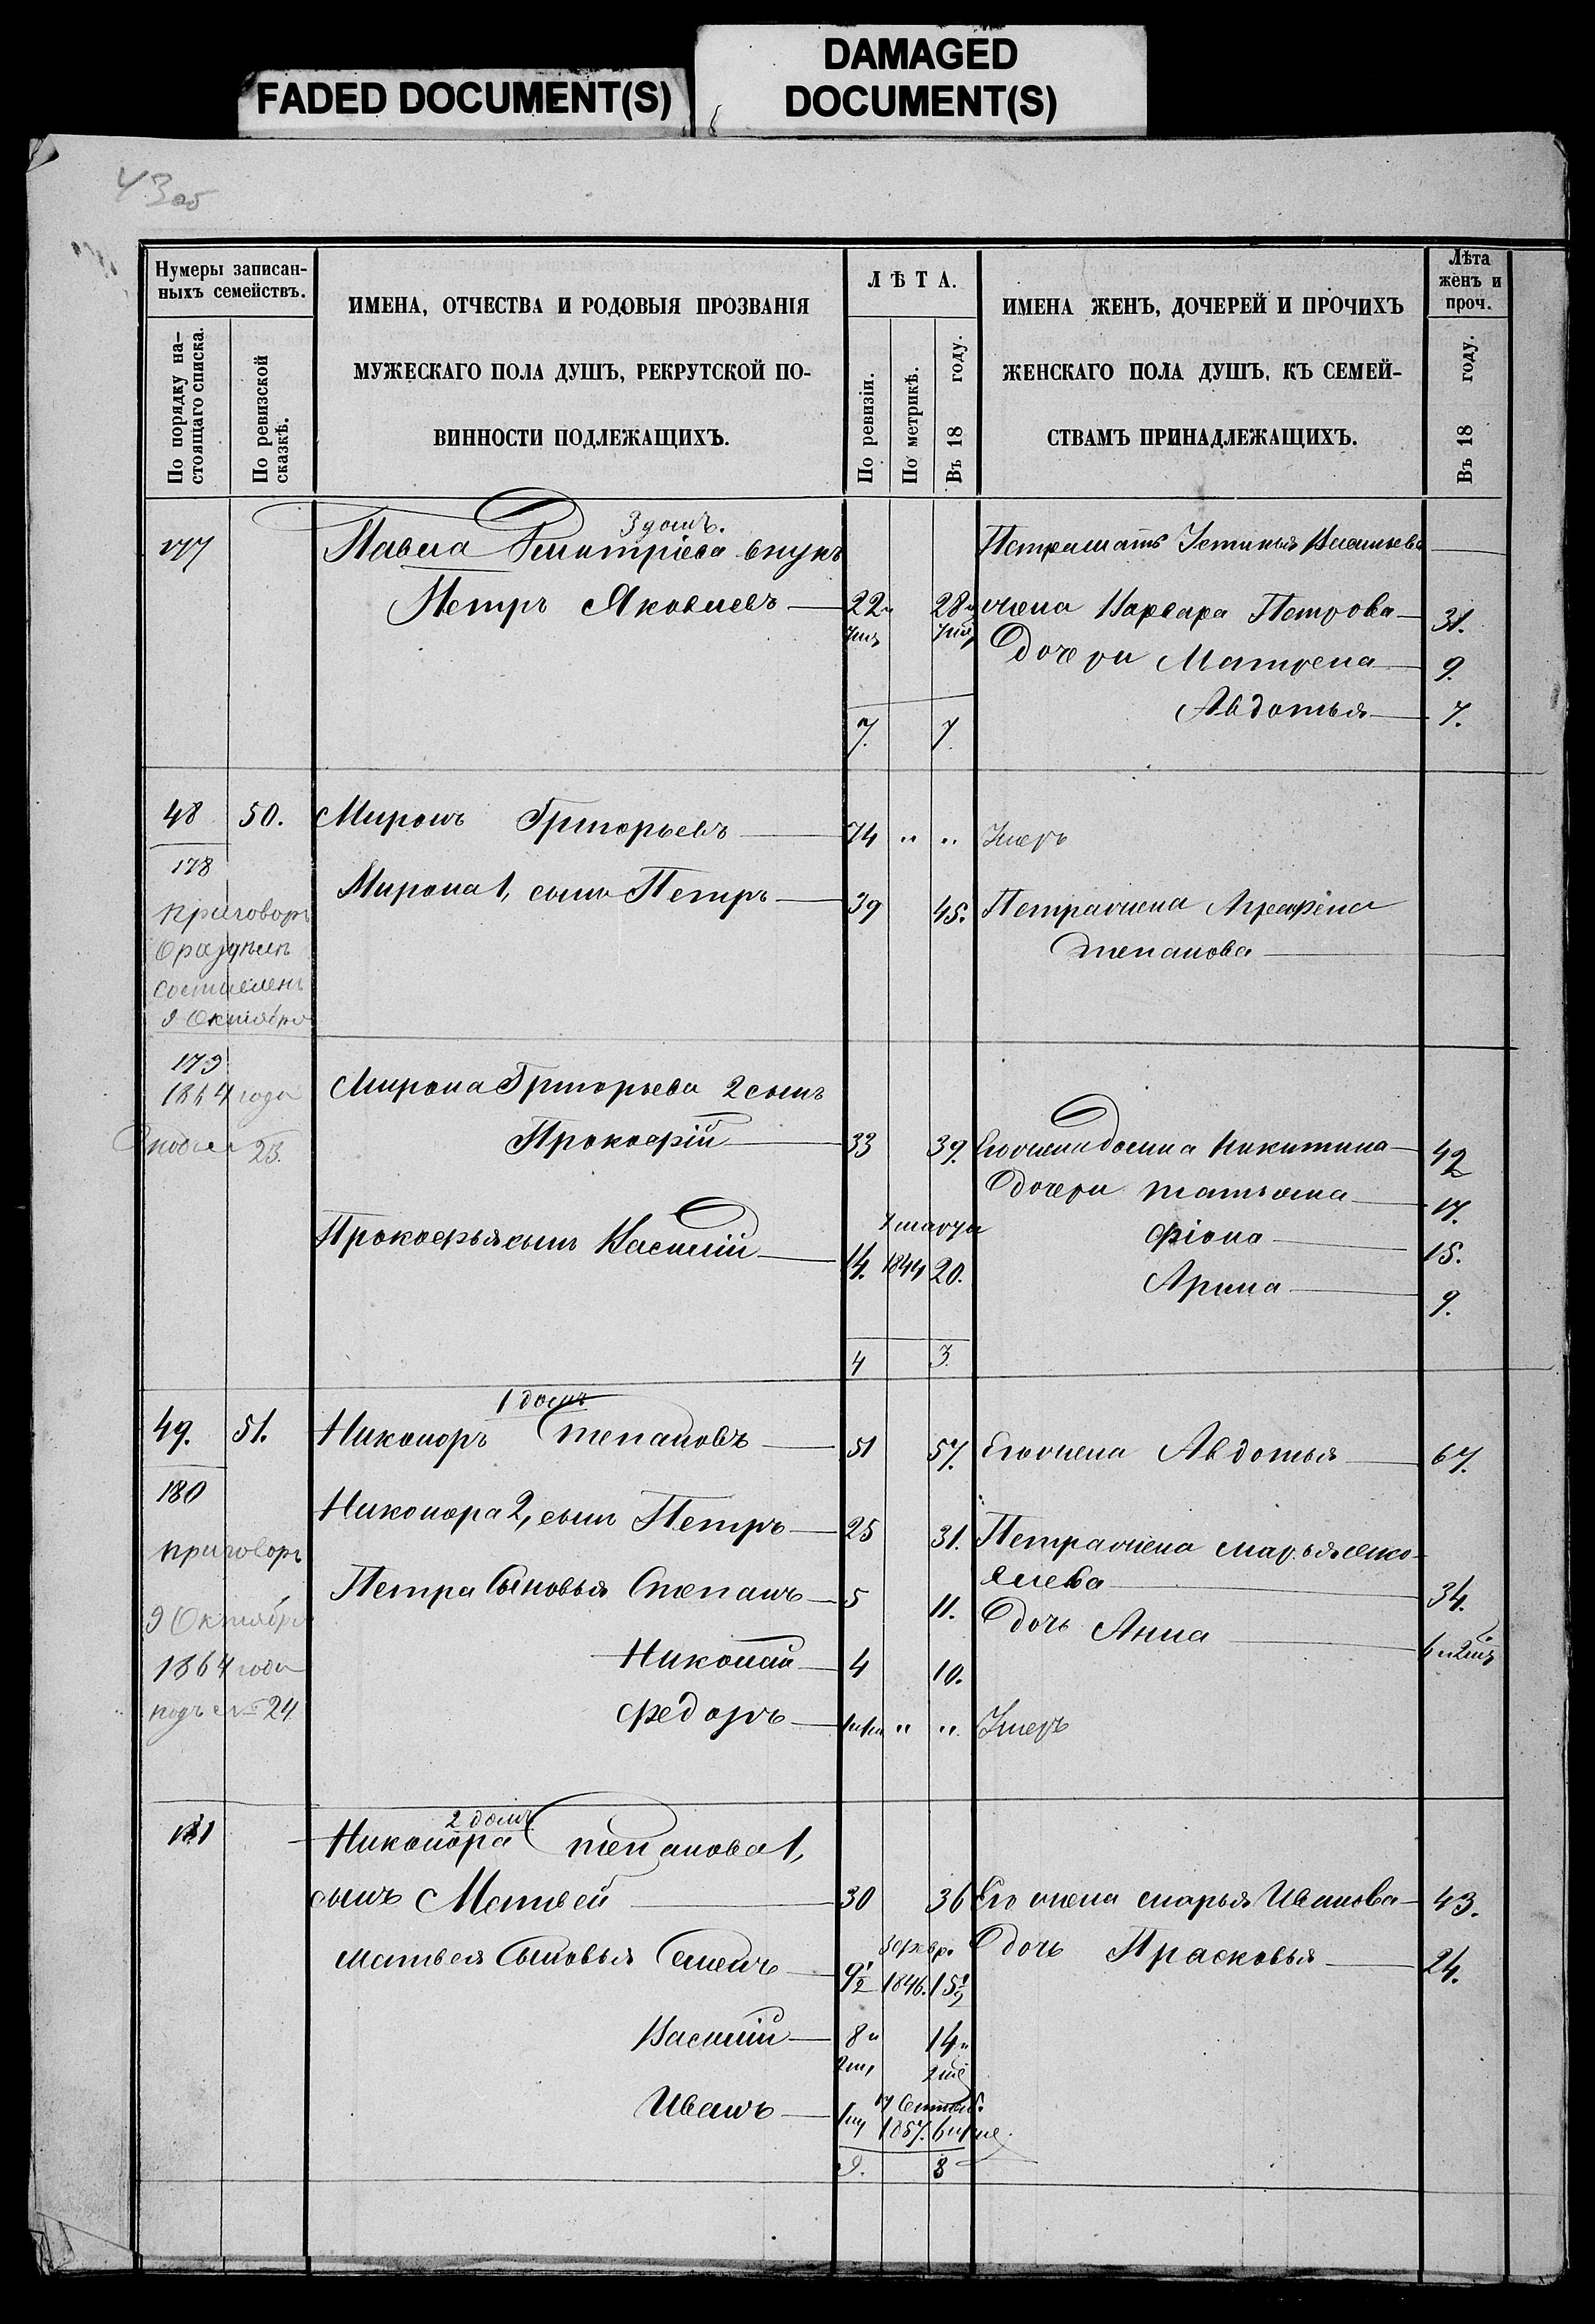 FADED DOCUMENT(S)
DAMAGED
DOCUMENT(S)
43об
Нумеры записан-
ныхъ семействъ.
По порядку на-
стоящаго списка.
По ревизской
сказкѣ.
ИМЕНА, ОТЧЕСТВА И РОДОВЫЯ ПРОЗВАНІЯ
МУЖЕСКАГО ПОЛА ДУШЪ, РЕКРУТСКОЙ ПО-
ВИННОСТИ ПОДЛЕЖАЩИХЪ.
ЛѢТА.
По ревизіи.
По метрикѣ.
Въ 18 году.
ИМЕНА ЖЕНЪ, ДОЧЕРЕЙ И ПРОЧИХЪ
ЖЕНСКАГО ПОЛА ДУШЪ, КЪ СЕМЕЙ-
СТВАМЪ ПРИНАДЛЕЖАЩИХЪ.
Лѣта
женъ и
проч.
Въ 18 году.
3 домъ.
177 Павла Дмитріева внукъ Петра мать Устинья Васильева
Петръ Яковлевъ 22 и 28 и жена Варвара Петрова 31.
дочери Матрена 9.
Авдотья 7.
7. 7.
48 50. Миронъ Григорьевъ 74 " " Умеръ
178
Мирона 1, сынъ Петръ 39 45. Петра жена Аграфена
Степанова
приговоръ
о раздѣлѣ
составленъ
9 Октября
179
1864 года Мирона Григорьева 2 сынъ
Прокофій 33 39. Его жена Домна Никитина 42
23. дочери Татьяна 17.
7 марта
Прокофья сынъ Василій 14. 1844 20. Фіона 15.
Арина 9.
4 3.
1 домъ
49. 51. Никоноръ Степановъ 51 57. Его жена Авдотья 67.
180
Никонора 2, сынъ Петръ 25 31. Петра жена Марья
34.
приговоръ
Петра Сыновья Степанъ 5 11. дочь Анна
9 Октября
1864 года Николай 4 10.
подъ № 24 Федоръ " " Умеръ
2 домъ
181 Никонора Степанова 1,
сынъ Матвей 30 36 Его жена Марья Иванова 43.
3 февр.
Матвея Сыновья Семенъ 9½ 1846. 15½ дочь Прасковья 24.
Василій 8 и 14 и
17 Сентяб.
Иванъ 1857.
9. 8